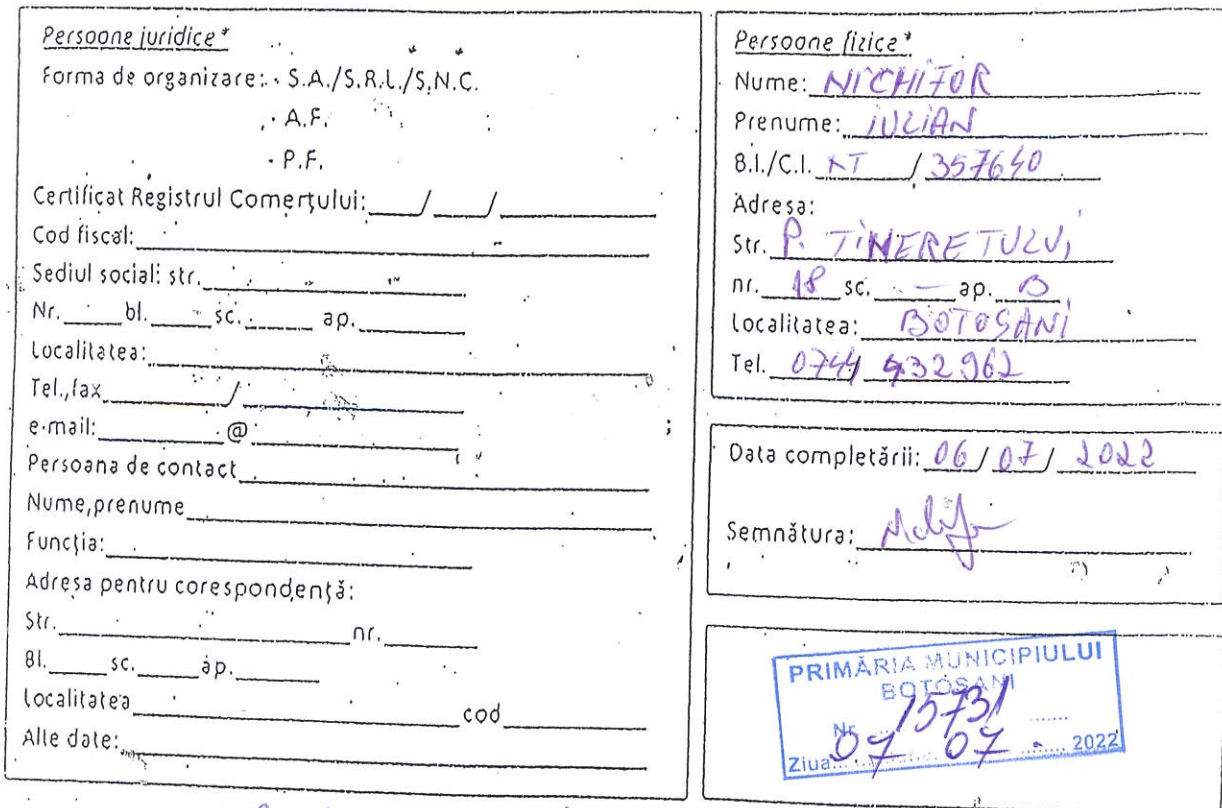 Persoane juridice*
Forma de organizare: · S.A./S.R.L./S.N.C.
· A.F.
· P.F.
Certificat Registrul Comerțului: ___/___/______
Cod fiscal:
Sediul social: str.
Nr. ____ bl. ____ sc. ____ ap. ____
Localitatea:
Tel.,fax ______/______
e-mail: ______@______
Persoana de contact
Nume,prenume
Funcția:
Adresa pentru corespondență:
Str. ______ nr. ____
Bl. ____ sc. ____ ap. ____
Localitatea ______ cod ______
Alte date:
Persoane fizice*
Nume: NICHIFOR
Prenume: IULIAN
B.I./C.I. / 357640
Adresa:
Str. P. TINERETULUI
nr. 18 sc. — ap.
Localitatea: BOTOSANI
Tel. 0744 432962
Data completării: 06/07/2022
Semnătura:
PRIMĂRIA MUNICIPIULUI
BOTOȘANI
Nr. 15731
Ziua 07 07 2022